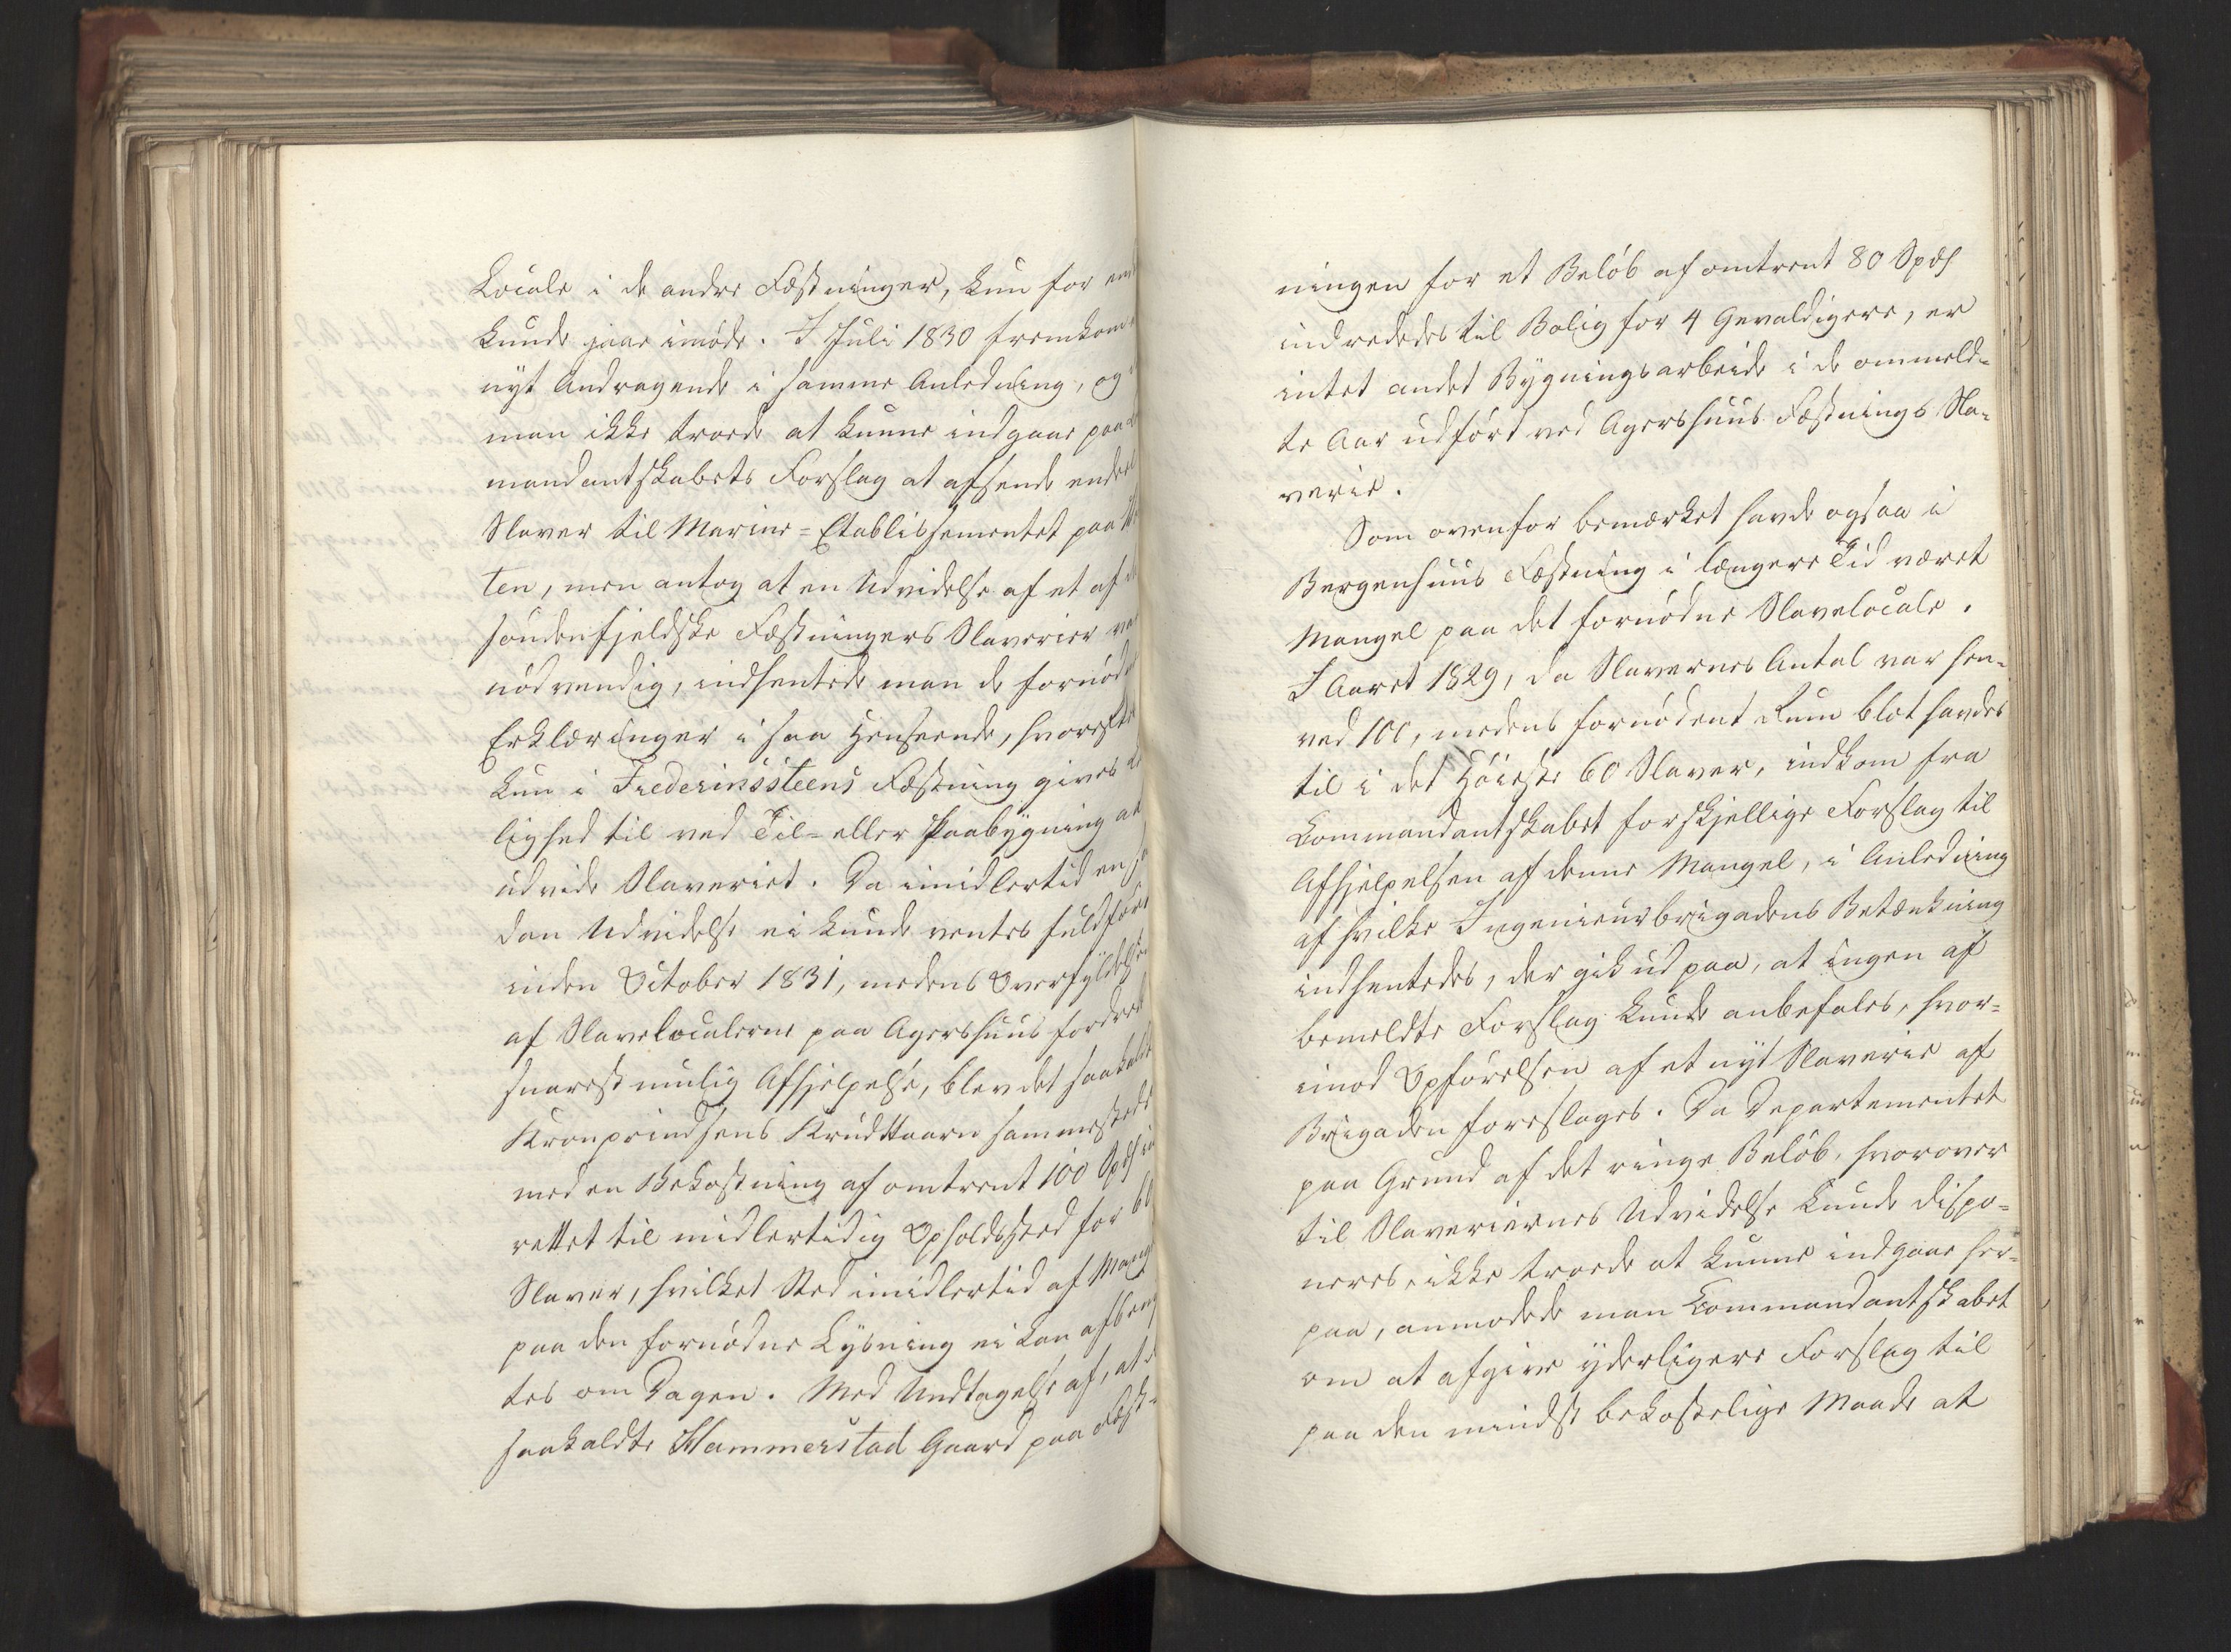 Locale i de andre Fæstninger, kun for en
kunde gaae imøde. I Juli 1830 fremkom
nyt Andragende i samme Anledning, og
man ikke troede at kunne indgaae paa
mandantskabets Forslag at afsende endeel
Slaver til Marine-Etablissementet paa
ten, men antog at en Udvidelse af et af de
søndenfjeldske Fæstningers Slaverier var
nødvendig, indhentede man de fornødne
Erklæringer i saa Henseende, hvorefter
kun i Fredericssteens Fæstning gives
lighed til ved Til- eller Paabygning at
udvide Slaveriet. Da imidlertid en
dan Udvidelse ei kunde ventes fuldført
inden October 1831, medens Overfyldelsen
af Slavelocalerne paa Agershuus fordrede
snarest mulig Afhjelpelse, blev det saakaldte
Kronprindsens Krudttaarn sammesteds
med en Bekostning af omtrent 100 Spd ind
rettet til midlertidig Opholdssted for 60
Slaver, hvilket Sted imidlertid af Mangel
paa den fornødne Lysning ei kan afben
tes om Dagen. Med Undtagelse af, at
saakaldte Hammerstad Gaard paa Fæst-
ningen for et Beløb af omtrent 80 Spd
indrededes til Bolig for 4 Gevaldigere, er
intet andet Bygningsarbeide i de ommeld-
te Aar udført ved Agershuus Fæstnings Sla-
verie.
Som ovenfor bemærket havde ogsaa i
Bergenhuus Fæstning i længere Tid været
Mangel paa det fornødne Slavelocale.
I Aaret 1829, da Slavernes Antal var hen-
ved 100, medens fornødent Rum blot havdes
til i det Høieste 60 Slaver, indkom fra
Commandantskabet forskjellige Forslag til
Afhjelpelsen af denne Mangel, i Anledning
af hvilke Ingenieurbrigadens Betænkning
indhentedes, der gik ud paa, at ingen af
bemeldte Forslag kunde anbefales, hvor-
imod Opførelsen af et nyt Slaverie af
Brigaden foresloges. Da Departementet
paa Grund af det ringe Beløb, hvorover
til Slaveriernes Udvidelse kunde dispo-
neres, ikke troede at kunne indgaae her-
paa, anmodede man Commandantskabet
om at afgive yderligere Forslag til
paa den mindst bekostelige Maade at